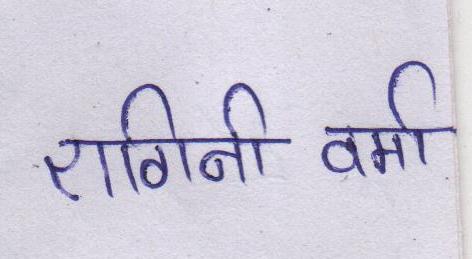 रागिनी वर्मा